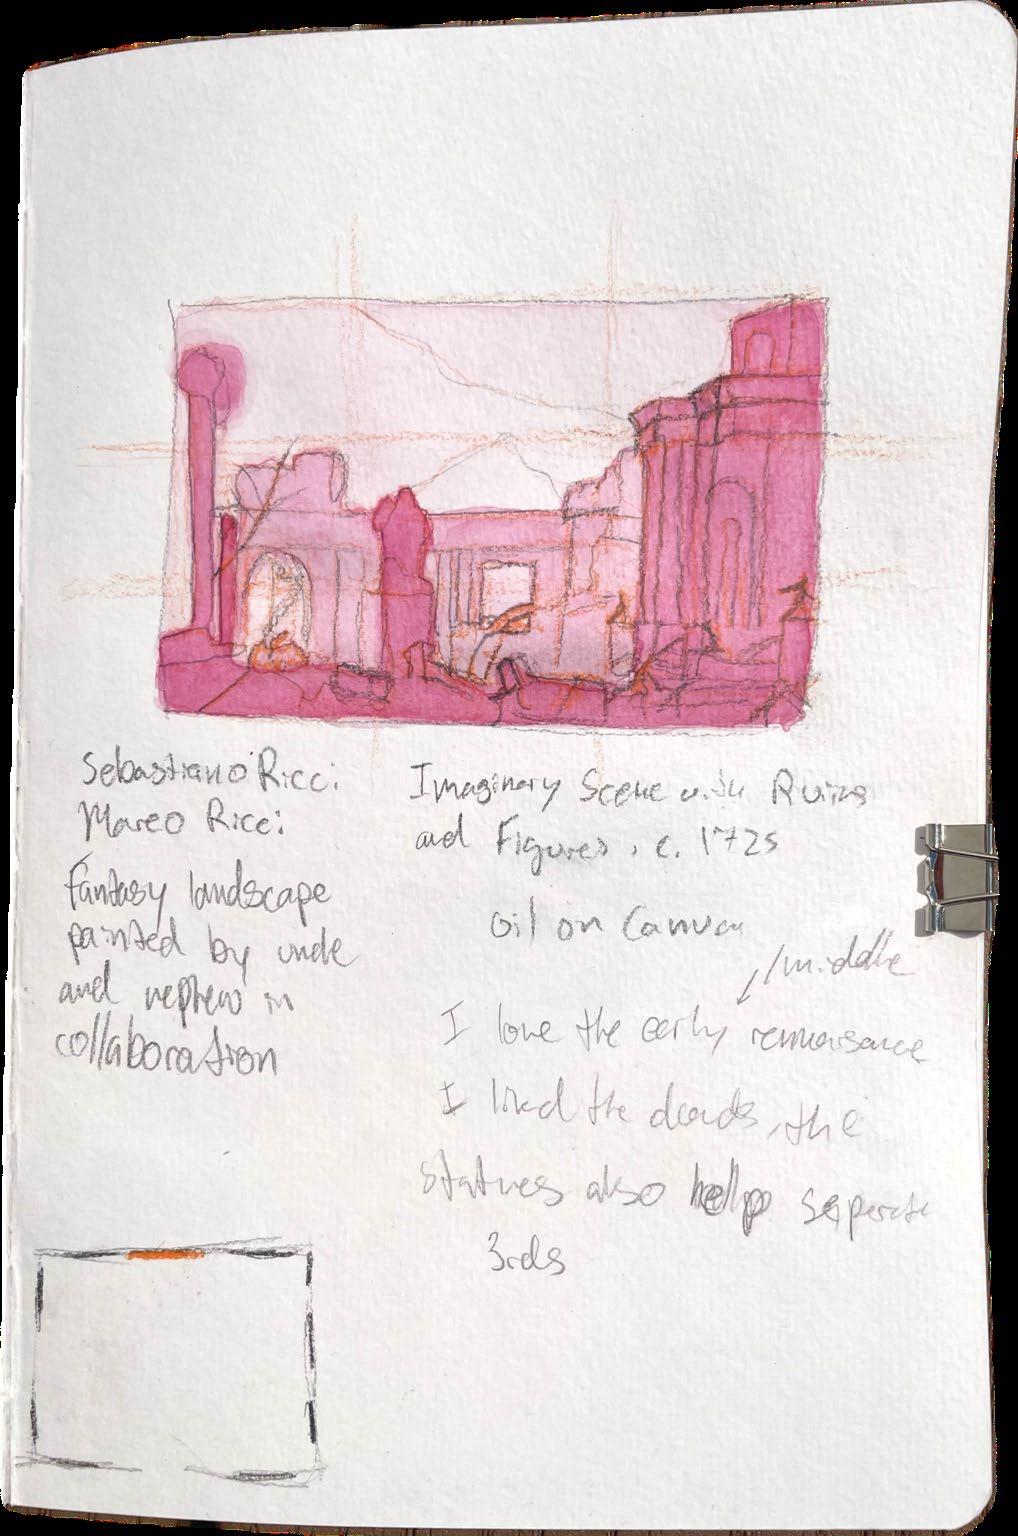 Sebastiano Ricci
Marco Ricci
Fantasy landscape
painted by uncle
and nephew in
collaboration
Imaginary Scene with Ruins
and Figures, c. 1725
oil on Canvas
//middle
I love the early rennaisance
I liked the clouds, the
statues also help seperate
3rds